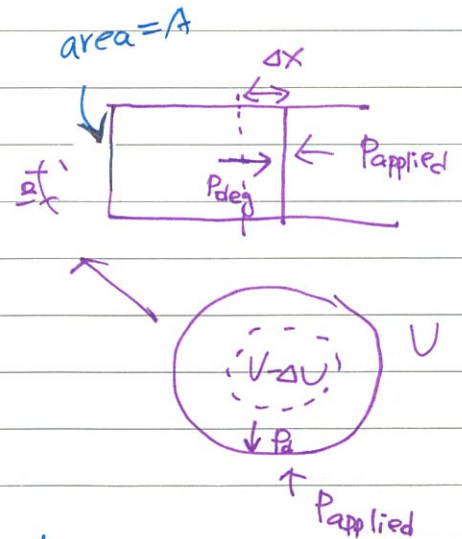 area=A
Δx
Papplied
Pdeg
V
V-ΔV
Pd
Papplied